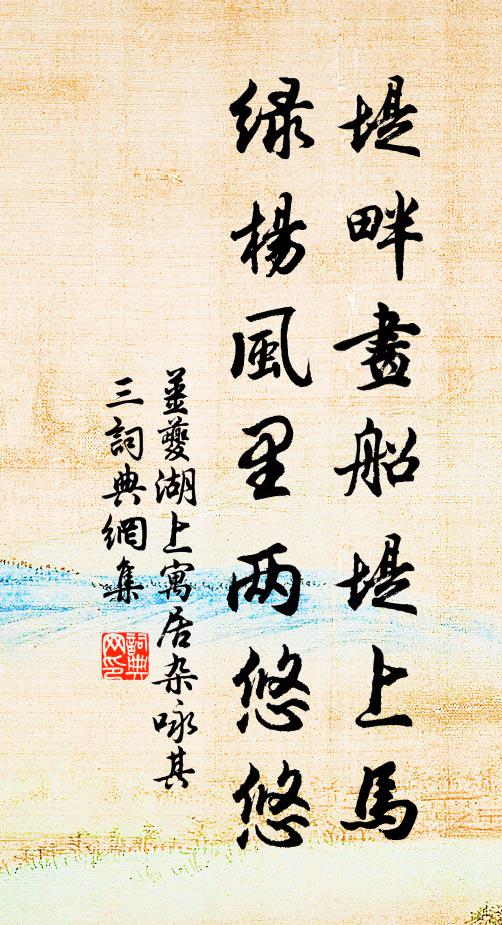 堤畔畫船堤上馬
綠楊風里两悠悠
姜夔湖上寓居杂咏其
三詞典網集
詞典网印